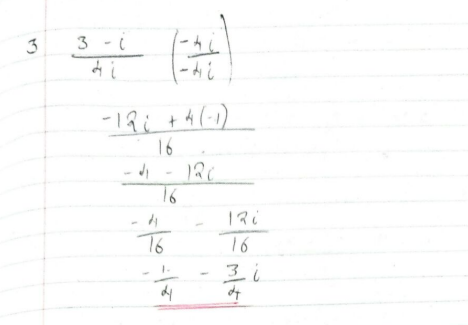 3 (3 - i)/(4i) (-4i/-4i)
(-12i + 4(-1))/16
(-4 - 12i)/16
-4/16 - 12i/16
-1/4 - 3/4 i